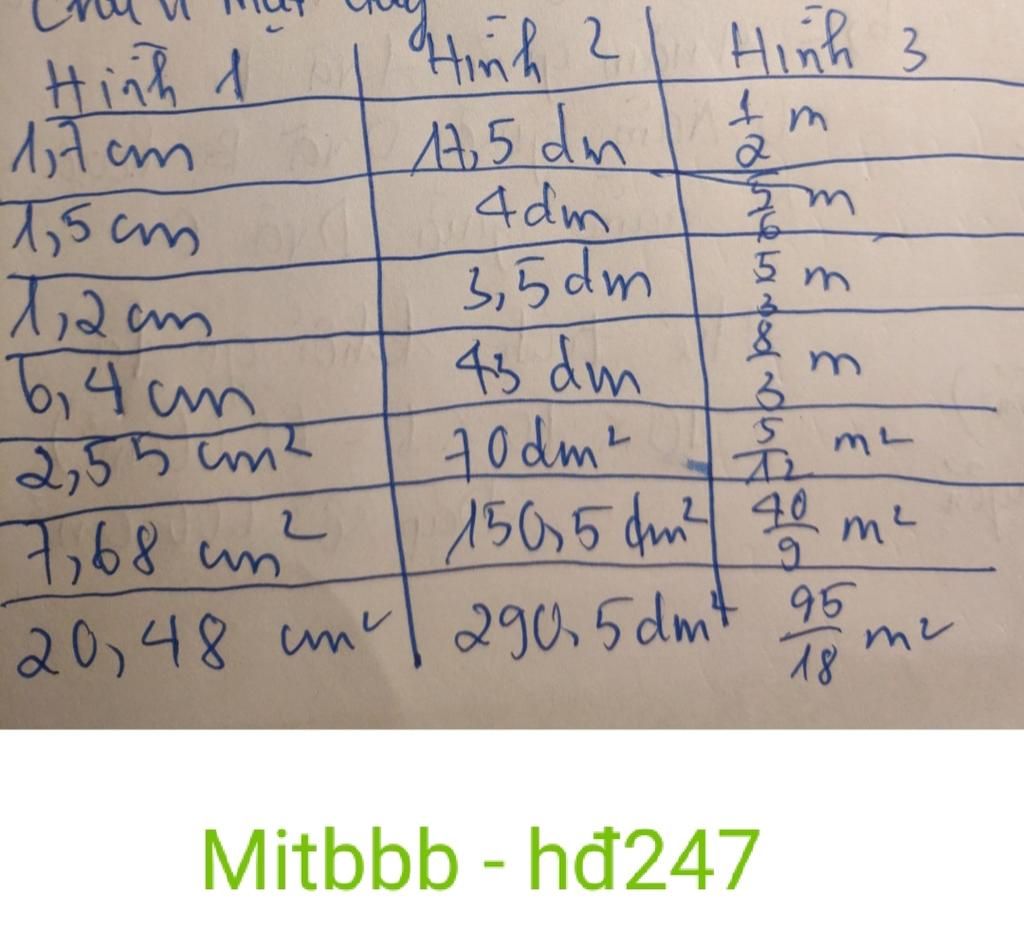 Chu vi mặt đáy
Hình 1 Hình 2 Hình 3
1,7 cm 17,5 dm 1/2 m
1,5 cm 4 dm 5/6 m
1,2 cm 3,5 dm 5/3 m
6,4 cm 43 dm 8/3 m
2,55 cm² 70 dm² 5/12 m²
7,68 cm² 150,5 dm² 40/9 m²
20,48 cm² 290,5 dm² 95/18 m²
Mitbbb - hđ247